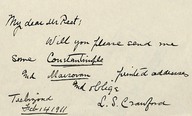 My dear Mr Peet:
Will you please send me
some Constantinople
and Marsovan printed addresses
and oblige
L. S. Crawford
Trebizond
Feb 14 1911